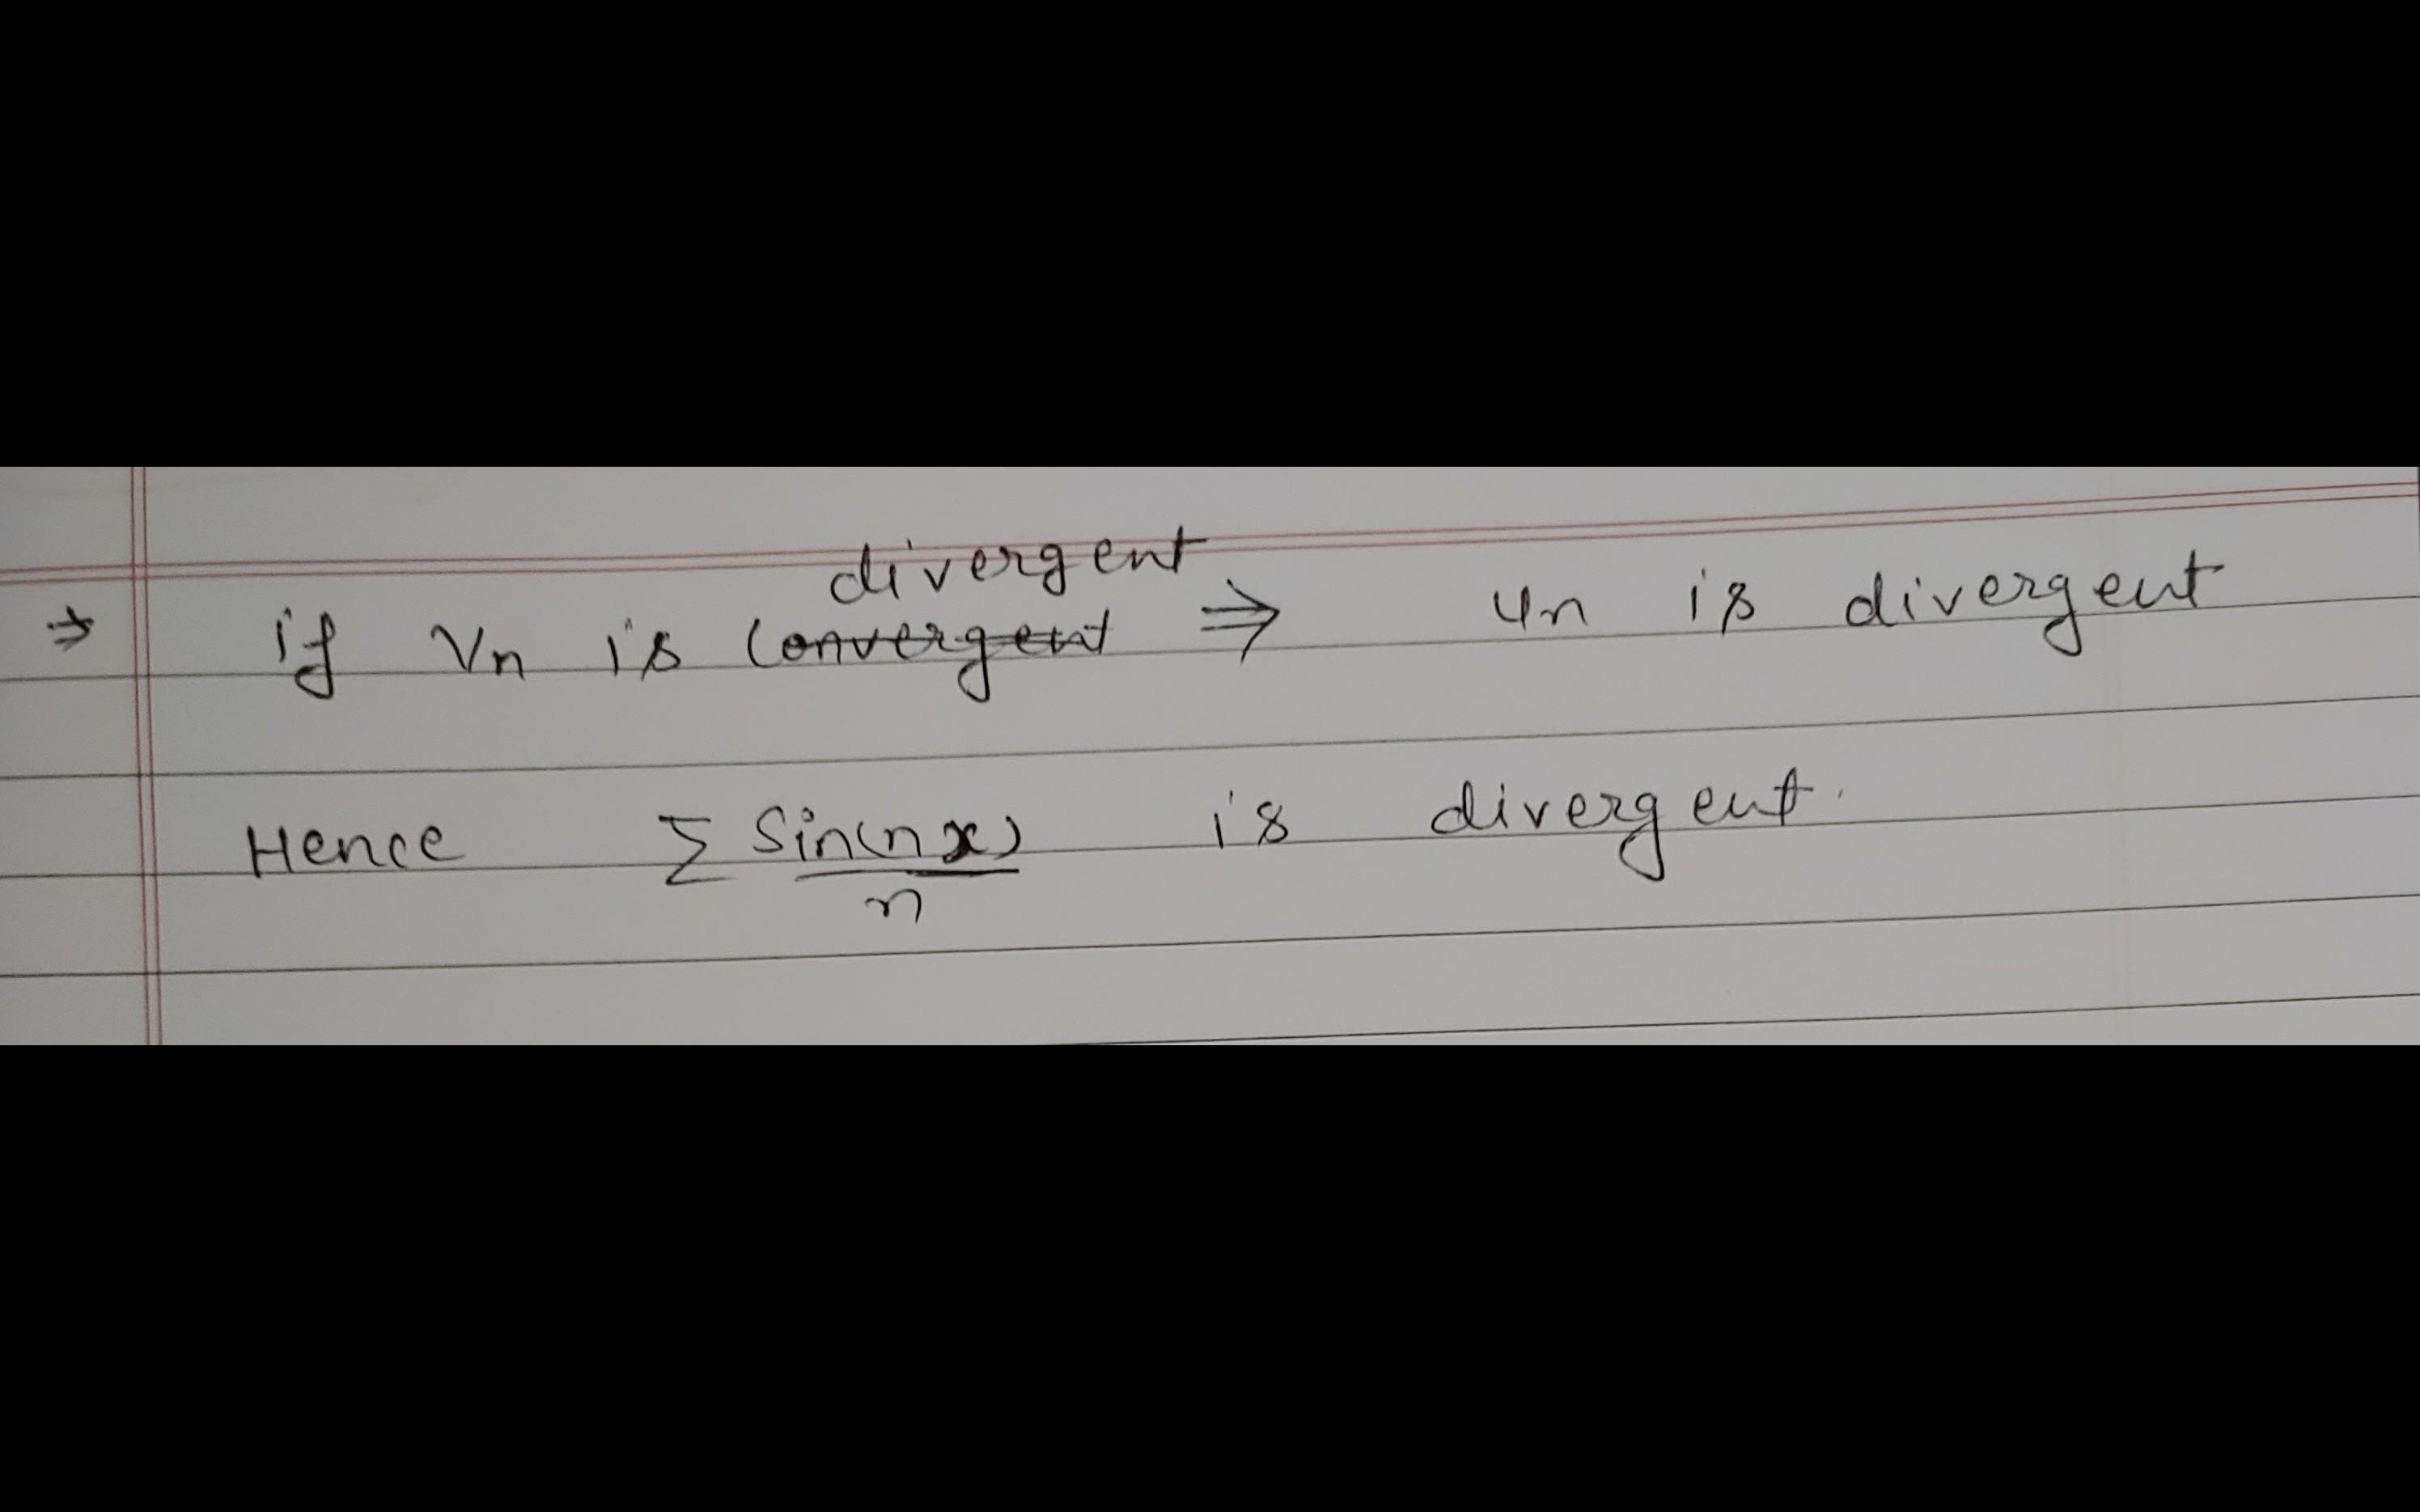 ⇒ if Vn is convergent divergent ⇒ Un is divergent
Hence Σ Sin(nx)/n is divergent.